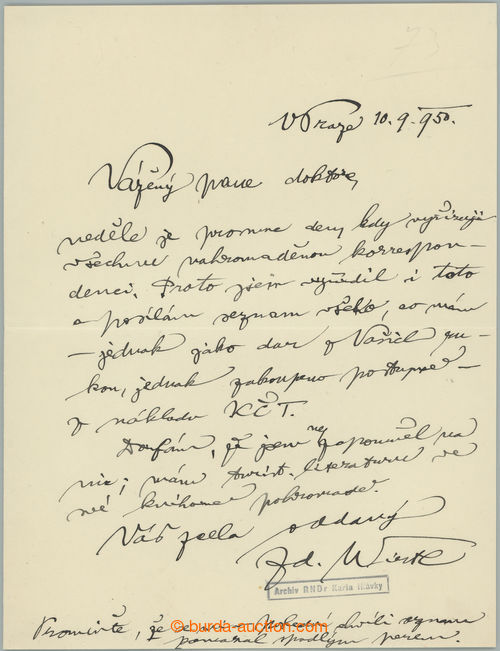 73
V Praze 10.9.950.
Vážený pane doktore,
neděle je pro mne dnem, kdy vyřizuji
všechnu nahromaděnou korrespon-
denci. Proto jsem vyřídil i toto
a posílám seznam všeho, co mám
- jednak jako dar z Vašich ru-
kou, jednak zakoupeno postupně -
z nákladu KČT.
Doufám, že jsem nezapomněl na
nic; mám turist. literaturu ve
své knihovně pohromadě.
Váš zcela oddaný
Zd. Wirth
Archiv RNDr Karla Hlávky
Promiňte, že chvíli seznam
špatným perem.
© burda-auction.com